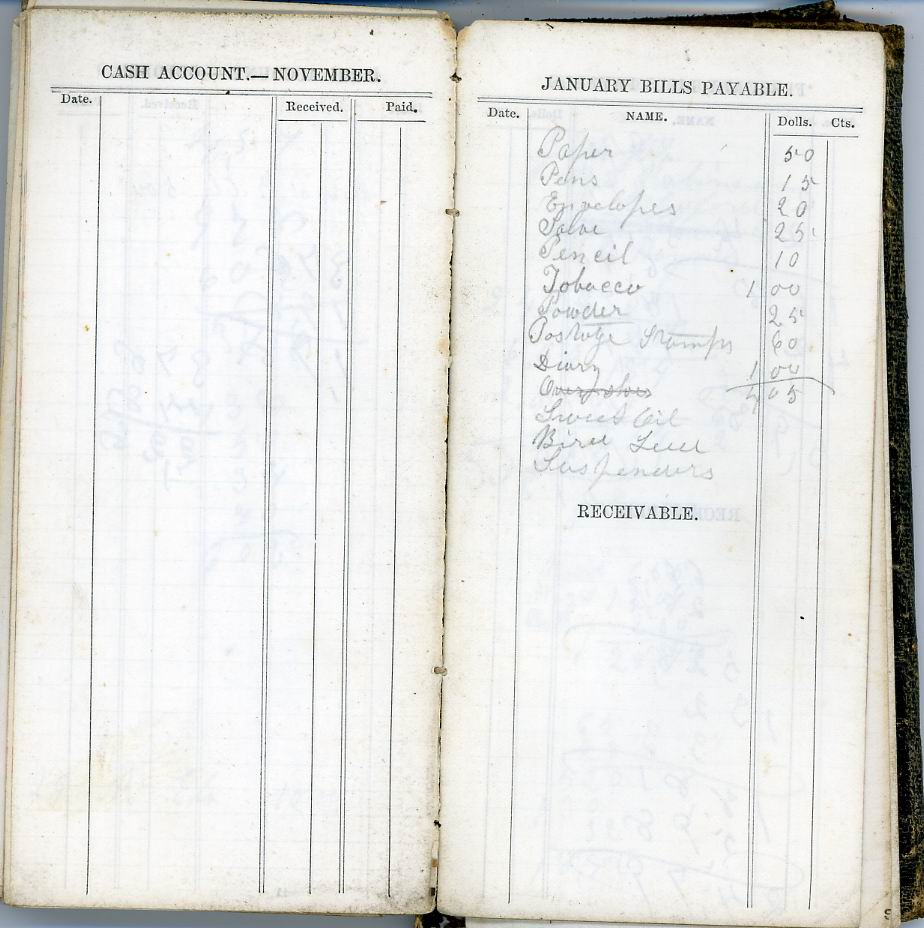 CASH ACCOUNT.—NOVEMBER.
Date. Received. Paid.
JANUARY BILLS PAYABLE.
Date. NAME. Dolls. Cts.
Paper 50
Pens 15
Envelopes 20
Salve 25
Pencil 10
Tobacco 1 00
Powder 25
Postage Stamps 60
Diary 1 00
Over shoes 4 05
Sweet Oil
Bird Seed
Suspenders
RECEIVABLE.